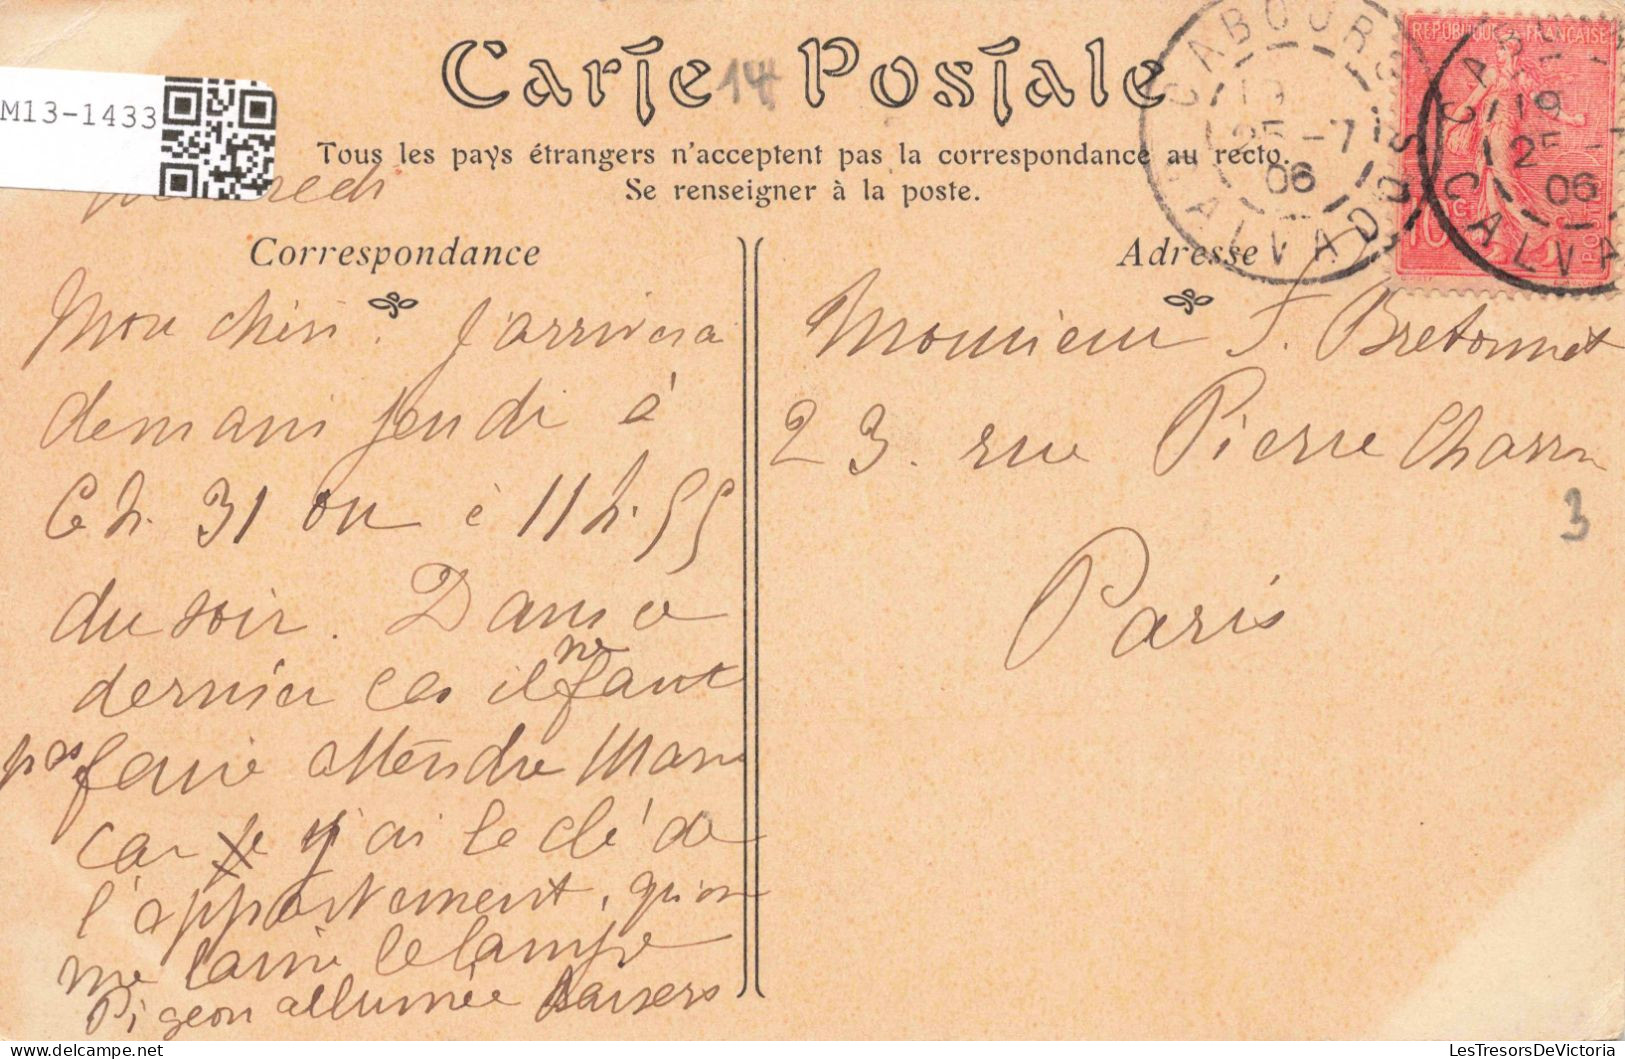 Carte Postale
14
M13-1433
Tous les pays étrangers n'acceptent pas la correspondance au recto.
Se renseigner à la poste.
CABOURG
19
25 -7
06
CALVADOS
REPUBLIQUE FRANÇAISE
10
POSTES
CABOU
19
25 -
06
CALVA
Correspondance
Mon chéri. J'arriverai
demain jeudi à
6 h. 31 ou à 11 h. 55
du soir. Dans ce
dernier cas il ne faut
pas faire attendre Marie
car je j'ai la clé de
l'appartement, qu'on
me laisse la lampe
Pigeon allumée Baisers
Adresse
Monsieur F. Bretonnet
23. rue Pierre Charron
Paris
3
LesTresorsDeVictoria